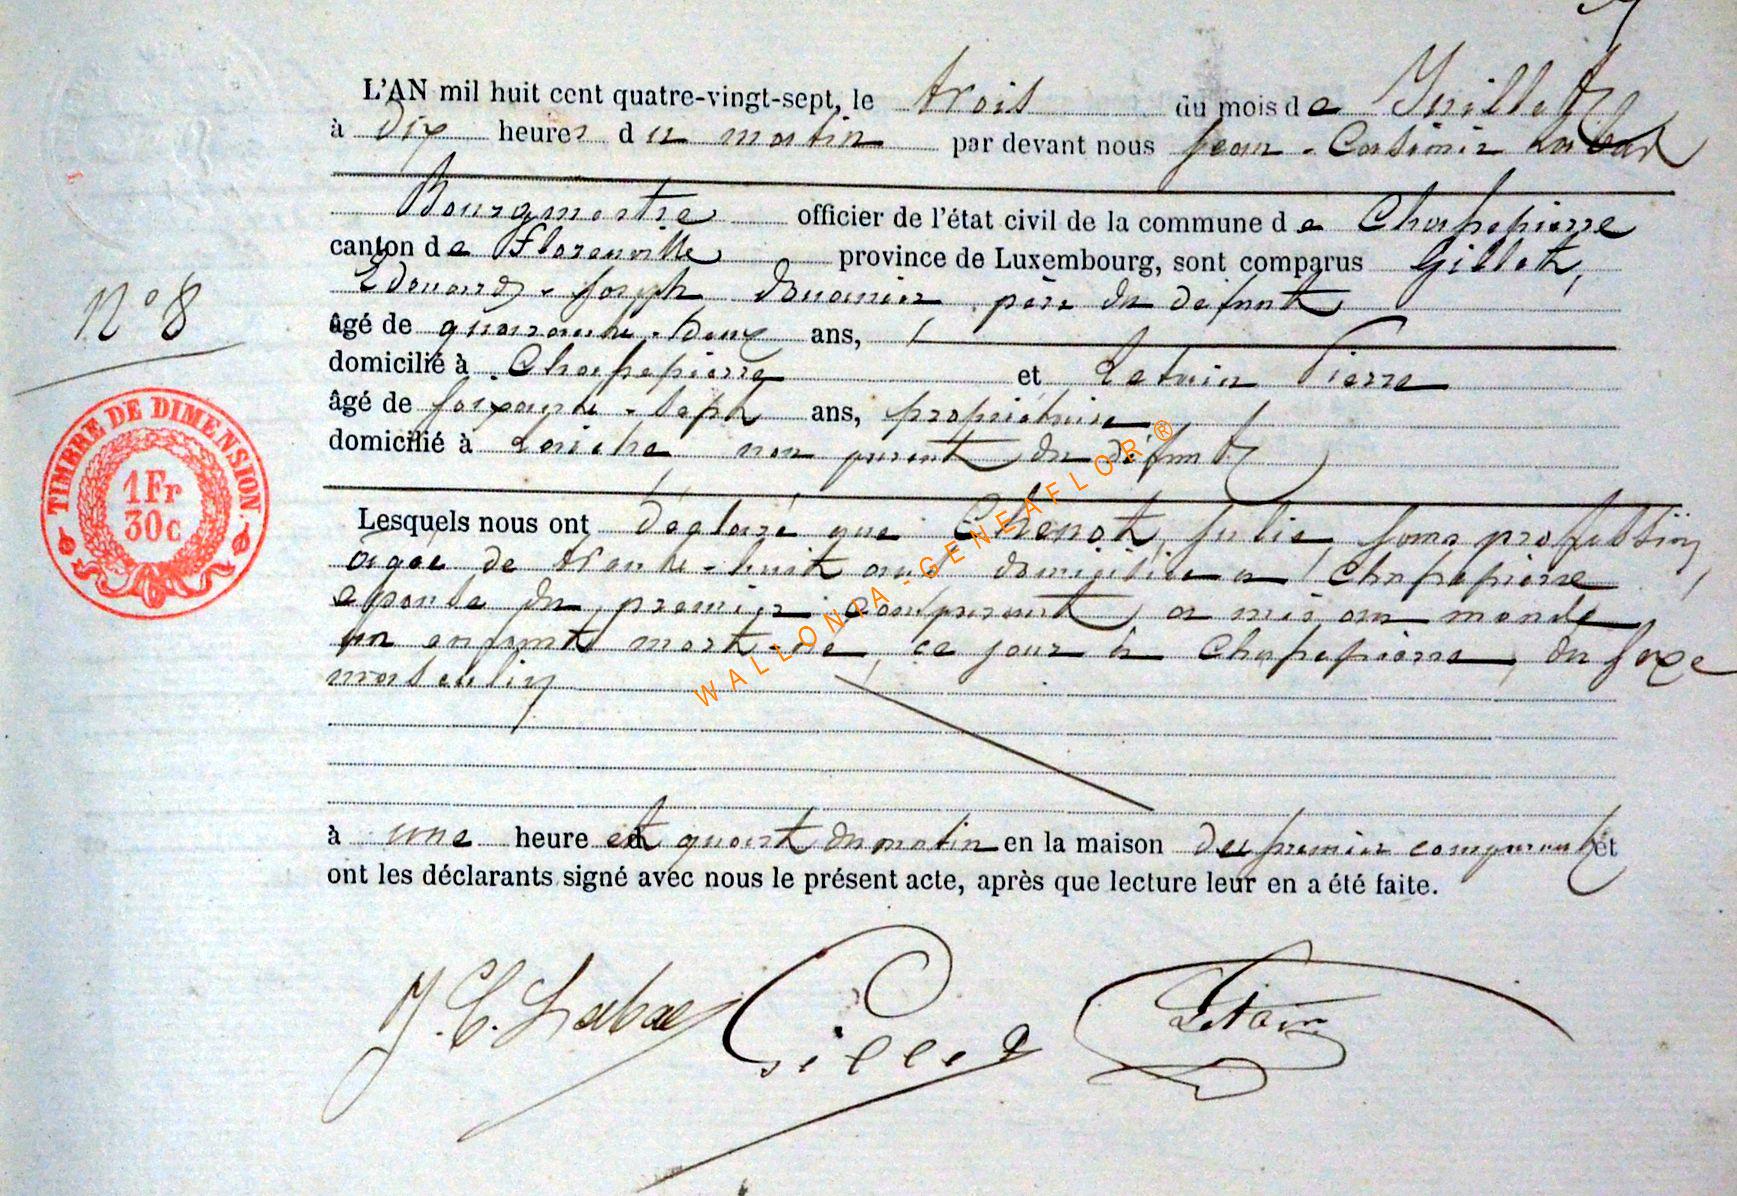 L'AN mil huit cent quatre-vingt-sept, le trois du mois de Juillet
à dix heures du matin par devant nous Jean-Casimir
Bourgmestre officier de l'état civil de la commune de Chassepierre
canton de Florenville province de Luxembourg, sont comparus Gillet,
Edouard-Joseph douanier père du défunt
N° 8
âgé de quarante-deux ans,
domicilié à Chassepierre et Letain Pierre
âgé de soixante-sept ans, propriétaire,
domicilié à Laiche, non parent du défunt
TIMBRE DE DIMENSION.
1Fr
30c
Lesquels nous ont déclaré que Chenot, Julie, sans profession,
âgée de trente-huit ans domiciliée à Chassepierre
épouse du premier comparant, a mis au monde
un enfant mort-né, ce jour à Chassepierre, du sexe
masculin
à une heure et quart du matin en la maison du premier comparant et
ont les déclarants signé avec nous le présent acte, après que lecture leur en a été faite.
J. C. Gillet Letain
WALLONIA-GENEAFLOR®